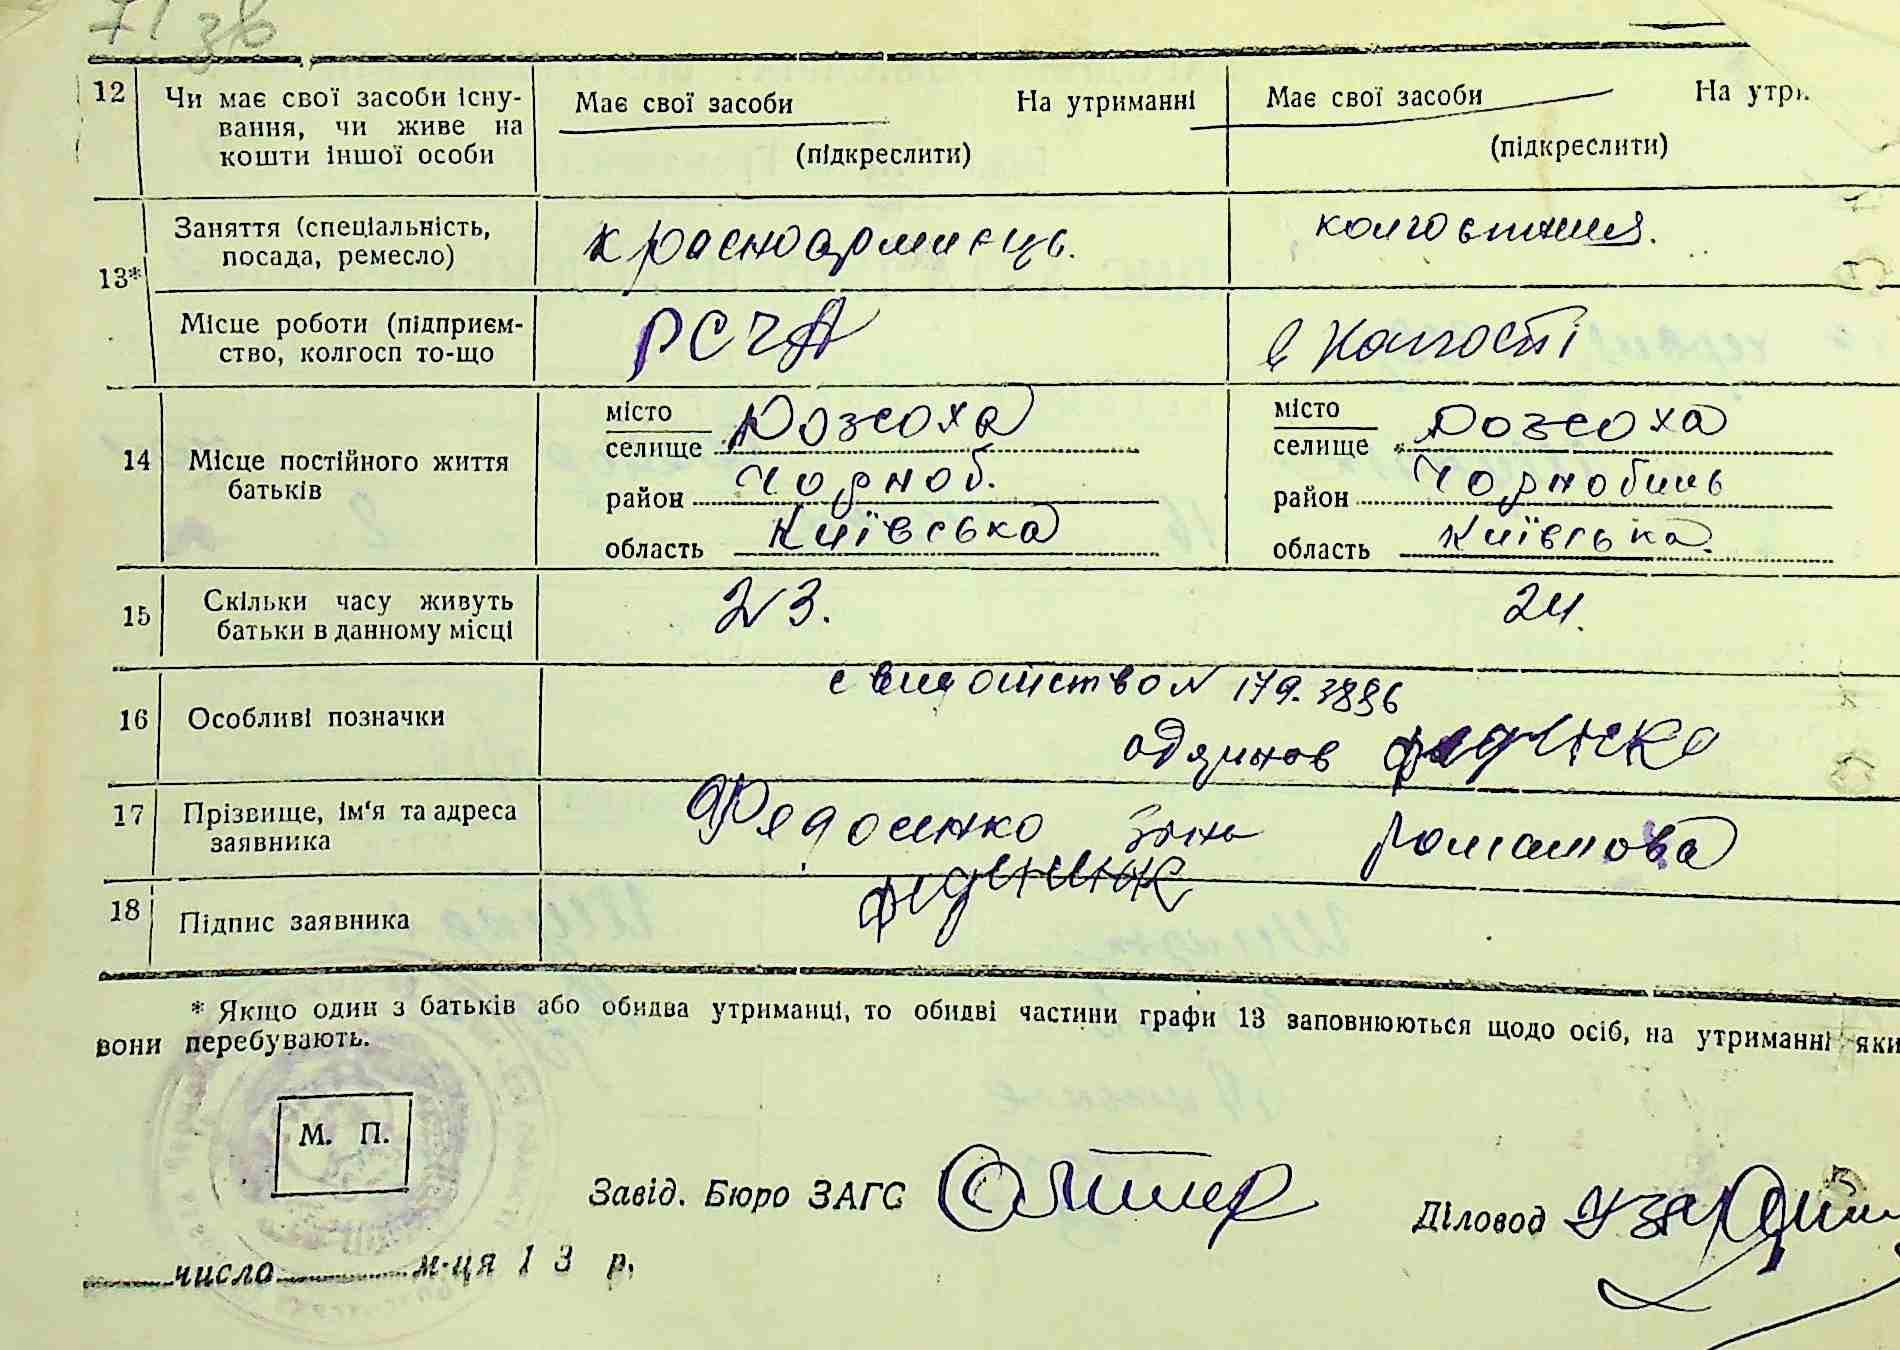 71 зв
12 Чи має свої засоби існу-
вання, чи живе на
кошти іншої особи
Має свої засоби На утриманні
(підкреслити)
Має свої засоби На утри
(підкреслити)
13* Заняття (спеціальність,
посада, ремесло)
красноармиєць.
колгоспниця.
Місце роботи (підприєм-
ство, колгосп то-що
РСЧА
в колгоспі
14 Місце постійного життя
батьків
місто
селище Розсоха
район Чорноб.
область Київська
місто
селище Розсоха
район Чорнобиль
область Київська.
15 Скільки часу живуть
батьки в данному місці
23.
24.
16 Особливі позначки
свидоітство №
17 Прізвище, ім'я та адреса
заявника
Фядосенко Зінь Романова
18 Підпис заявника
* Якщо один з батьків або обидва утриманці, то обидві частини графи 13 заповнюються щодо осіб, на утриманні яки
вони перебувають.
М. П.
Завід. Бюро ЗАГС
Діловод
число м-ця 1 3 р.